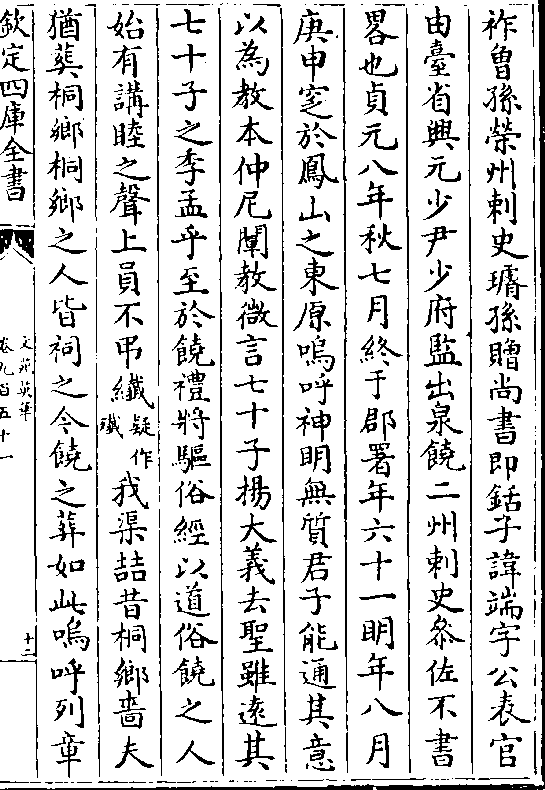 祚曾孫榮州刺史璿孫贈尚書即銛子諱端字公表官
由臺省興元少尹少府監出泉饒二州刺史叅佐不書
畧也貞元八年秋七月終于郡署年六十一明年八月
庚申窆於鳳山之東原嗚呼神明無質君子能通其意
以為教本仲尼闡教微言七十子揚大義去聖雖逺其
七十子之季孟乎至於饒禮將驅俗經以道俗饒之人
始有講睦之聲上員不弔纎疑作殱我渠喆昔桐鄉嗇夫
猶葬桐鄉桐鄉之人皆祠之今饒之葬如此嗚呼列章
欽定四庫全書
文苑英華
卷九百五十一
十二